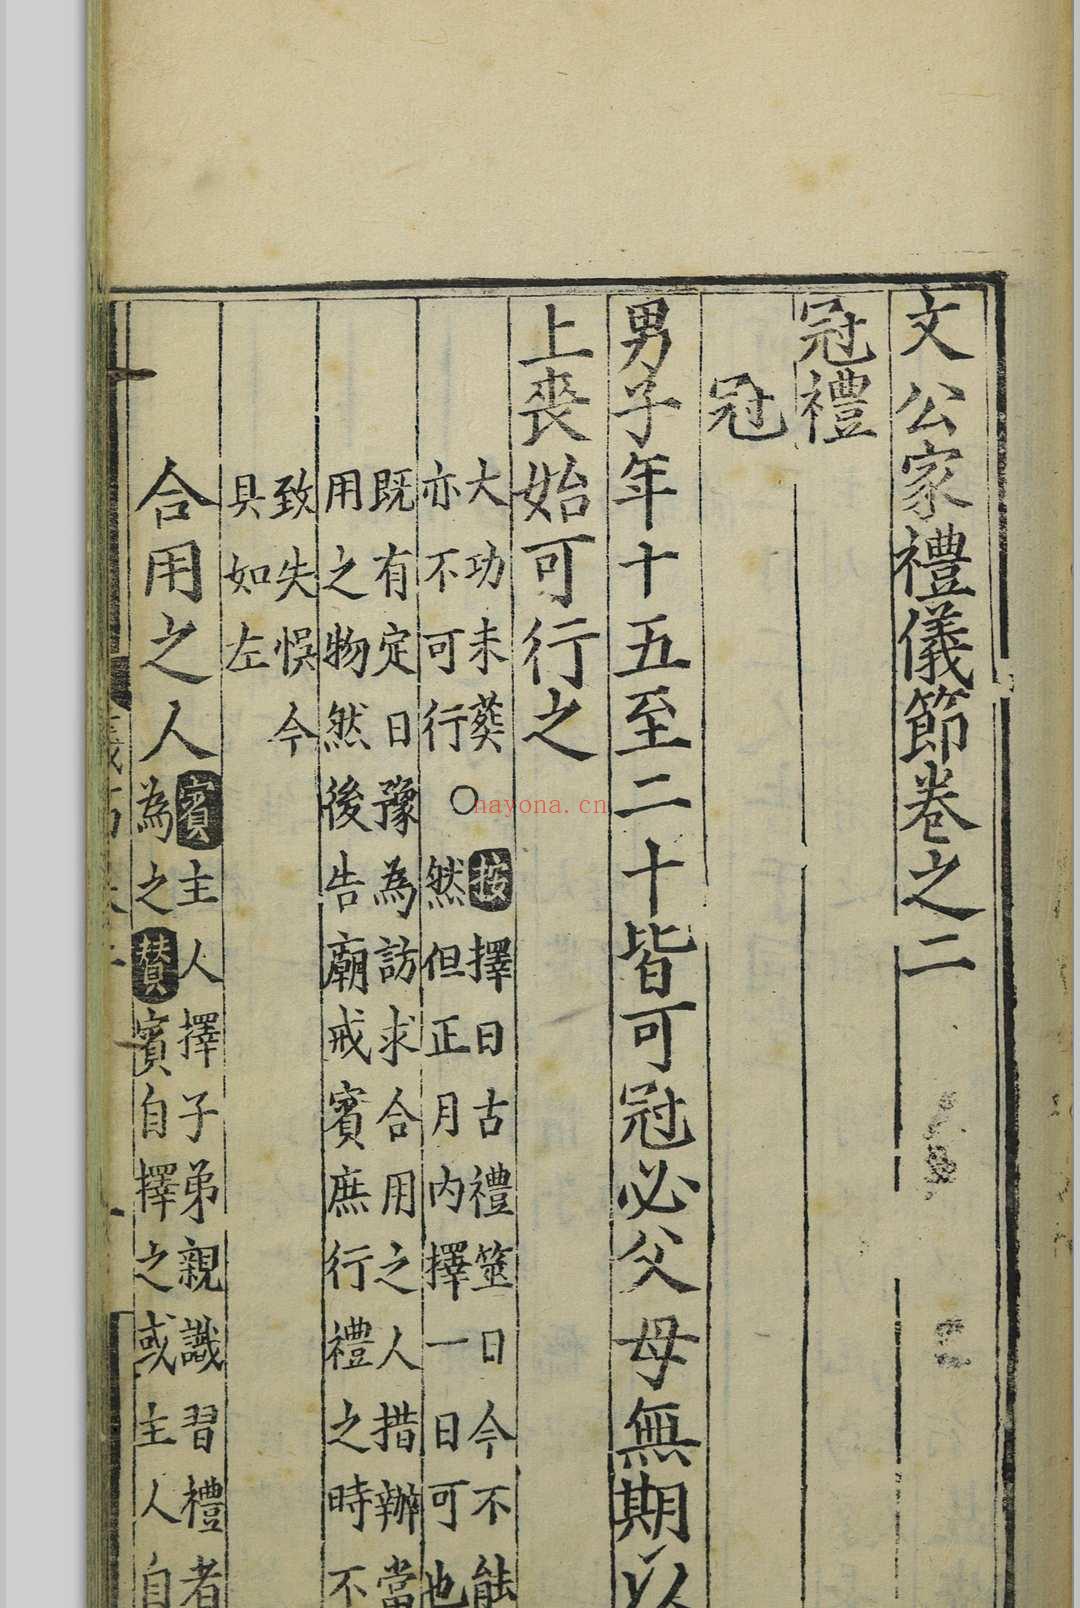 文公家禮儀節卷之二
冠禮
冠
男子年十五至二十皆可冠必父母無期以
上喪始可行之
大功未葬
亦不可行
○
按擇日古禮筮日今不能
然但正月內擇一日可也
既有定日豫為訪求合用之人措辦當
用之物然後告廟戒賓庶行禮之時不
致失悞今
具如左
合用之人
賓主人擇子弟親識習禮者
為之贊賓自擇之或主人自
nayona.cn